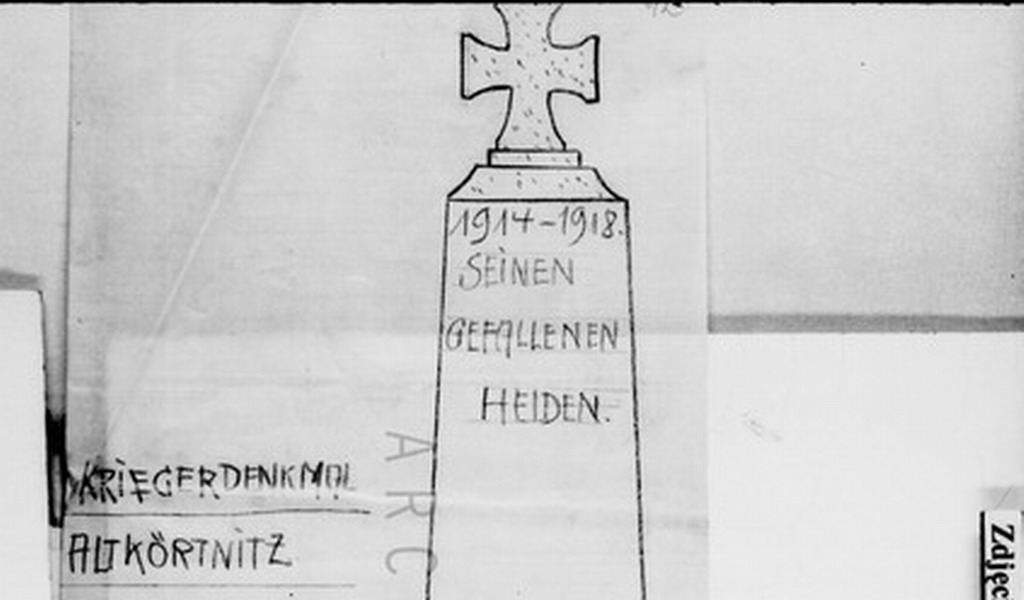 1914-1918.
SEINEN
GEFALLENEN
HEIDEN.
KRIEGERDENKMAL
ALTKÖRTNITZ
ARC
Zdjęc